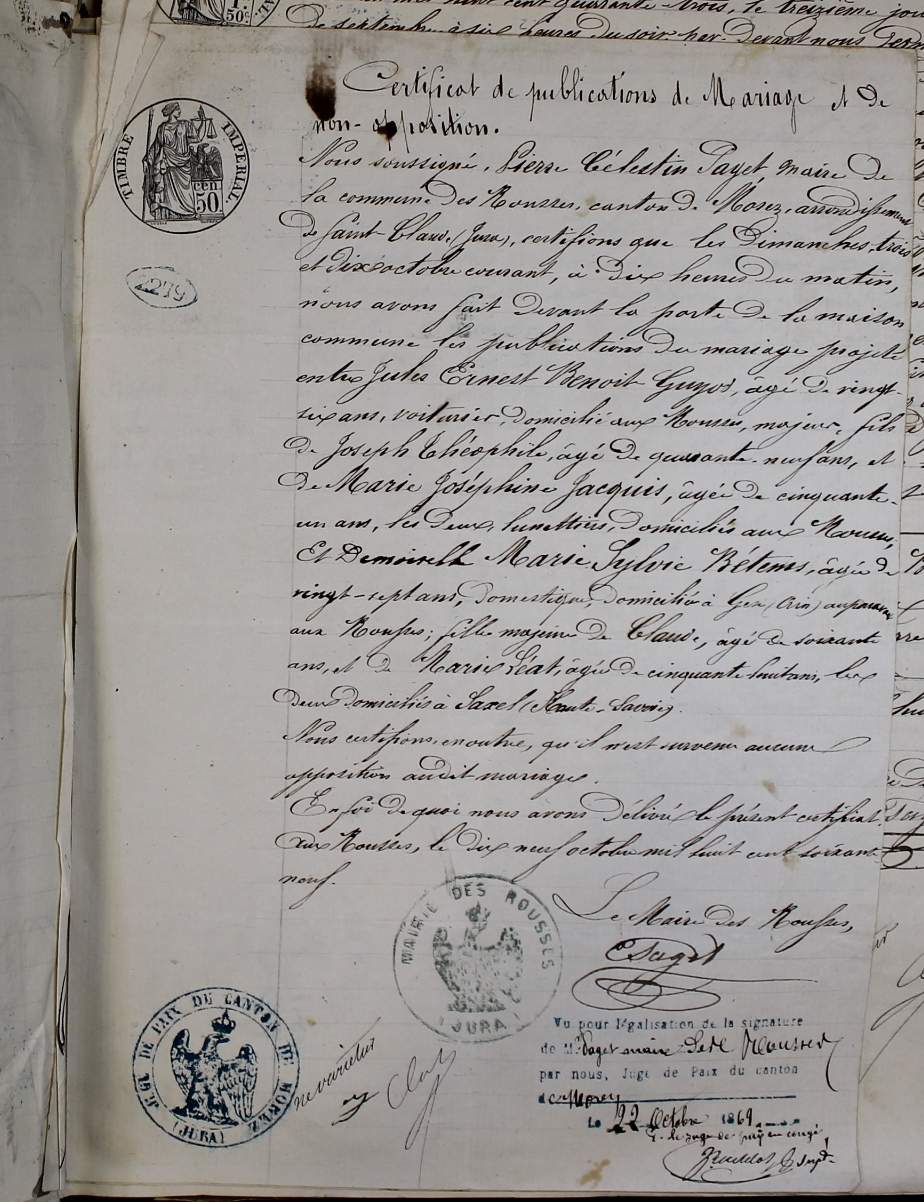 de septembre à six heures du soir, par Devant nous
Certificat de publications de Mariage et de
non-opposition.
TIMBRE IMPERIAL
50 cen
Nous soussigné, Pierre Célestin Paget, maire de
la commune des Rousses, canton de Morez, arrondissement
de Saint-Claude (Jura), certifions que les Dimanches, trois
et dix octobre courant, à dix heures du matin,
nous avons fait devant la porte de la maison
commune les publications du mariage projeté
entre Jules Ernest Benoit-Guyod, âgé de vingt-
six ans, voiturier, domicilié aux Rousses, majeur, fils
de Joseph Théophile, âgé de quarante-neuf ans, et
de Marie Joséphine Jacquis, âgée de cinquante-
un ans, les deux, lunettiers, domiciliés aux Rousses,
Et Demoiselle Marie Sylvie Bétems, âgée de
vingt-sept ans, domestique, domiciliée à Gex (Ain) auparavant
aux Rousses; fille majeure de Claude, âgé de soixante
ans, et de Marie Léat, âgée de cinquante huit ans, les
deux domiciliés à Saxel (Haute-Savoie).
Nous certifions, en outre, qu'il n'est survenu aucune
opposition audit mariage.
En foi de quoi nous avons délivré le présent certificat.
Aux Rousses, le dix neuf octobre mil huit cent soixante
neuf.
Le Maire des Rousses,
CPaget
MAIRIE DES ROUSSES
(JURA)
JGE DE PAIX DU CANTON DE MOREZ
(JURA)
ne varietur
Vu pour légalisation de la signature
de M. Paget maire des Rousses
par nous, Juge de Paix du canton
de Morez
Le 22 Octobre 1869
P. le juge de paix en congé,